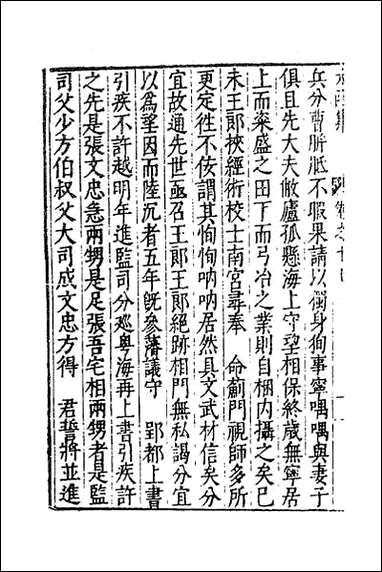 兵分曹胼胝不暇果請以獨身狥事寧喁喁與妻子
俱且先大夫敝廬孤懸海上守望相保終歲無寧居
上而粢盛之田下而弓冶之業則自梱内攝之矣已
未王郞挾經術校士南宮尋奉 命薊門視師多所
更定徃不佞謂其恂恂呐呐居然具文武材信矣分
宜故通先世亟召王郞王郞絕跡相門無私謁分宜
以爲望因而陸沉者五年旣參藩議守 郢都上書
引疾不許越明年進監司分廵粤海再上書引疾許
之先是張文忠急兩甥是足張吾宅相兩甥者是監
司父少方伯叔父大司成文忠方得 君誓將並進